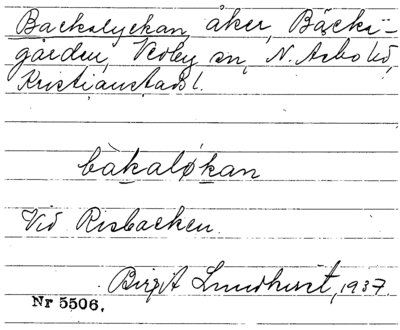 Backalyckan, åker, Bäcka-
gården, Vedby sn, N. Åsbo hd,
Kristianstads l.
bàkaløkan
Vid Risbacken.
Birgit Lundkvist, 1937.
Nr 5506.